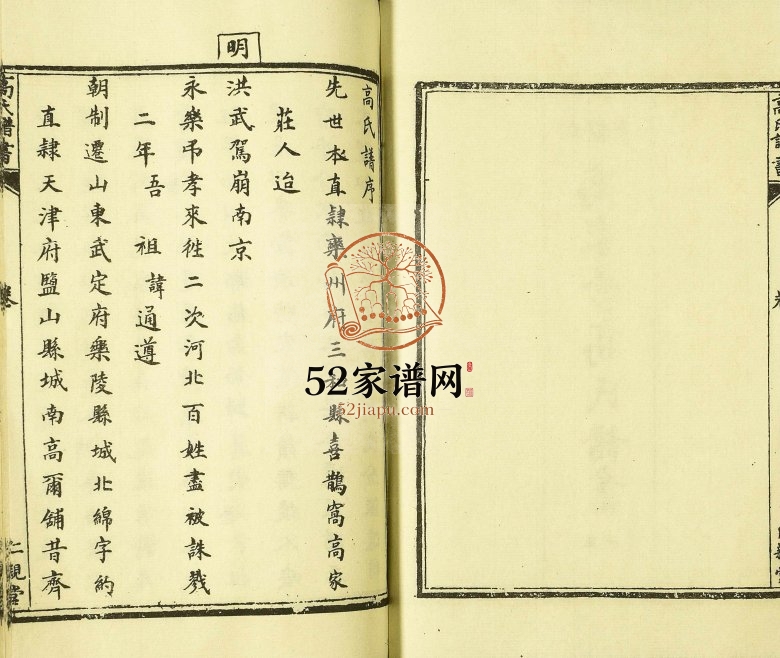 高氏譜序
先世本直隸欒州府三和縣喜鵲窩高家
莊人迨
明
洪武駕崩南京
永樂弔孝來徃二次河北百姓盡被誅戮
二年吾祖諱通遵
朝制遷山東武定府樂陵縣城北綿字約
直隸天津府鹽山縣城南高爾舖昔齊
高氏譜書
卷
高氏譜書
52家谱网
52jiapu.com